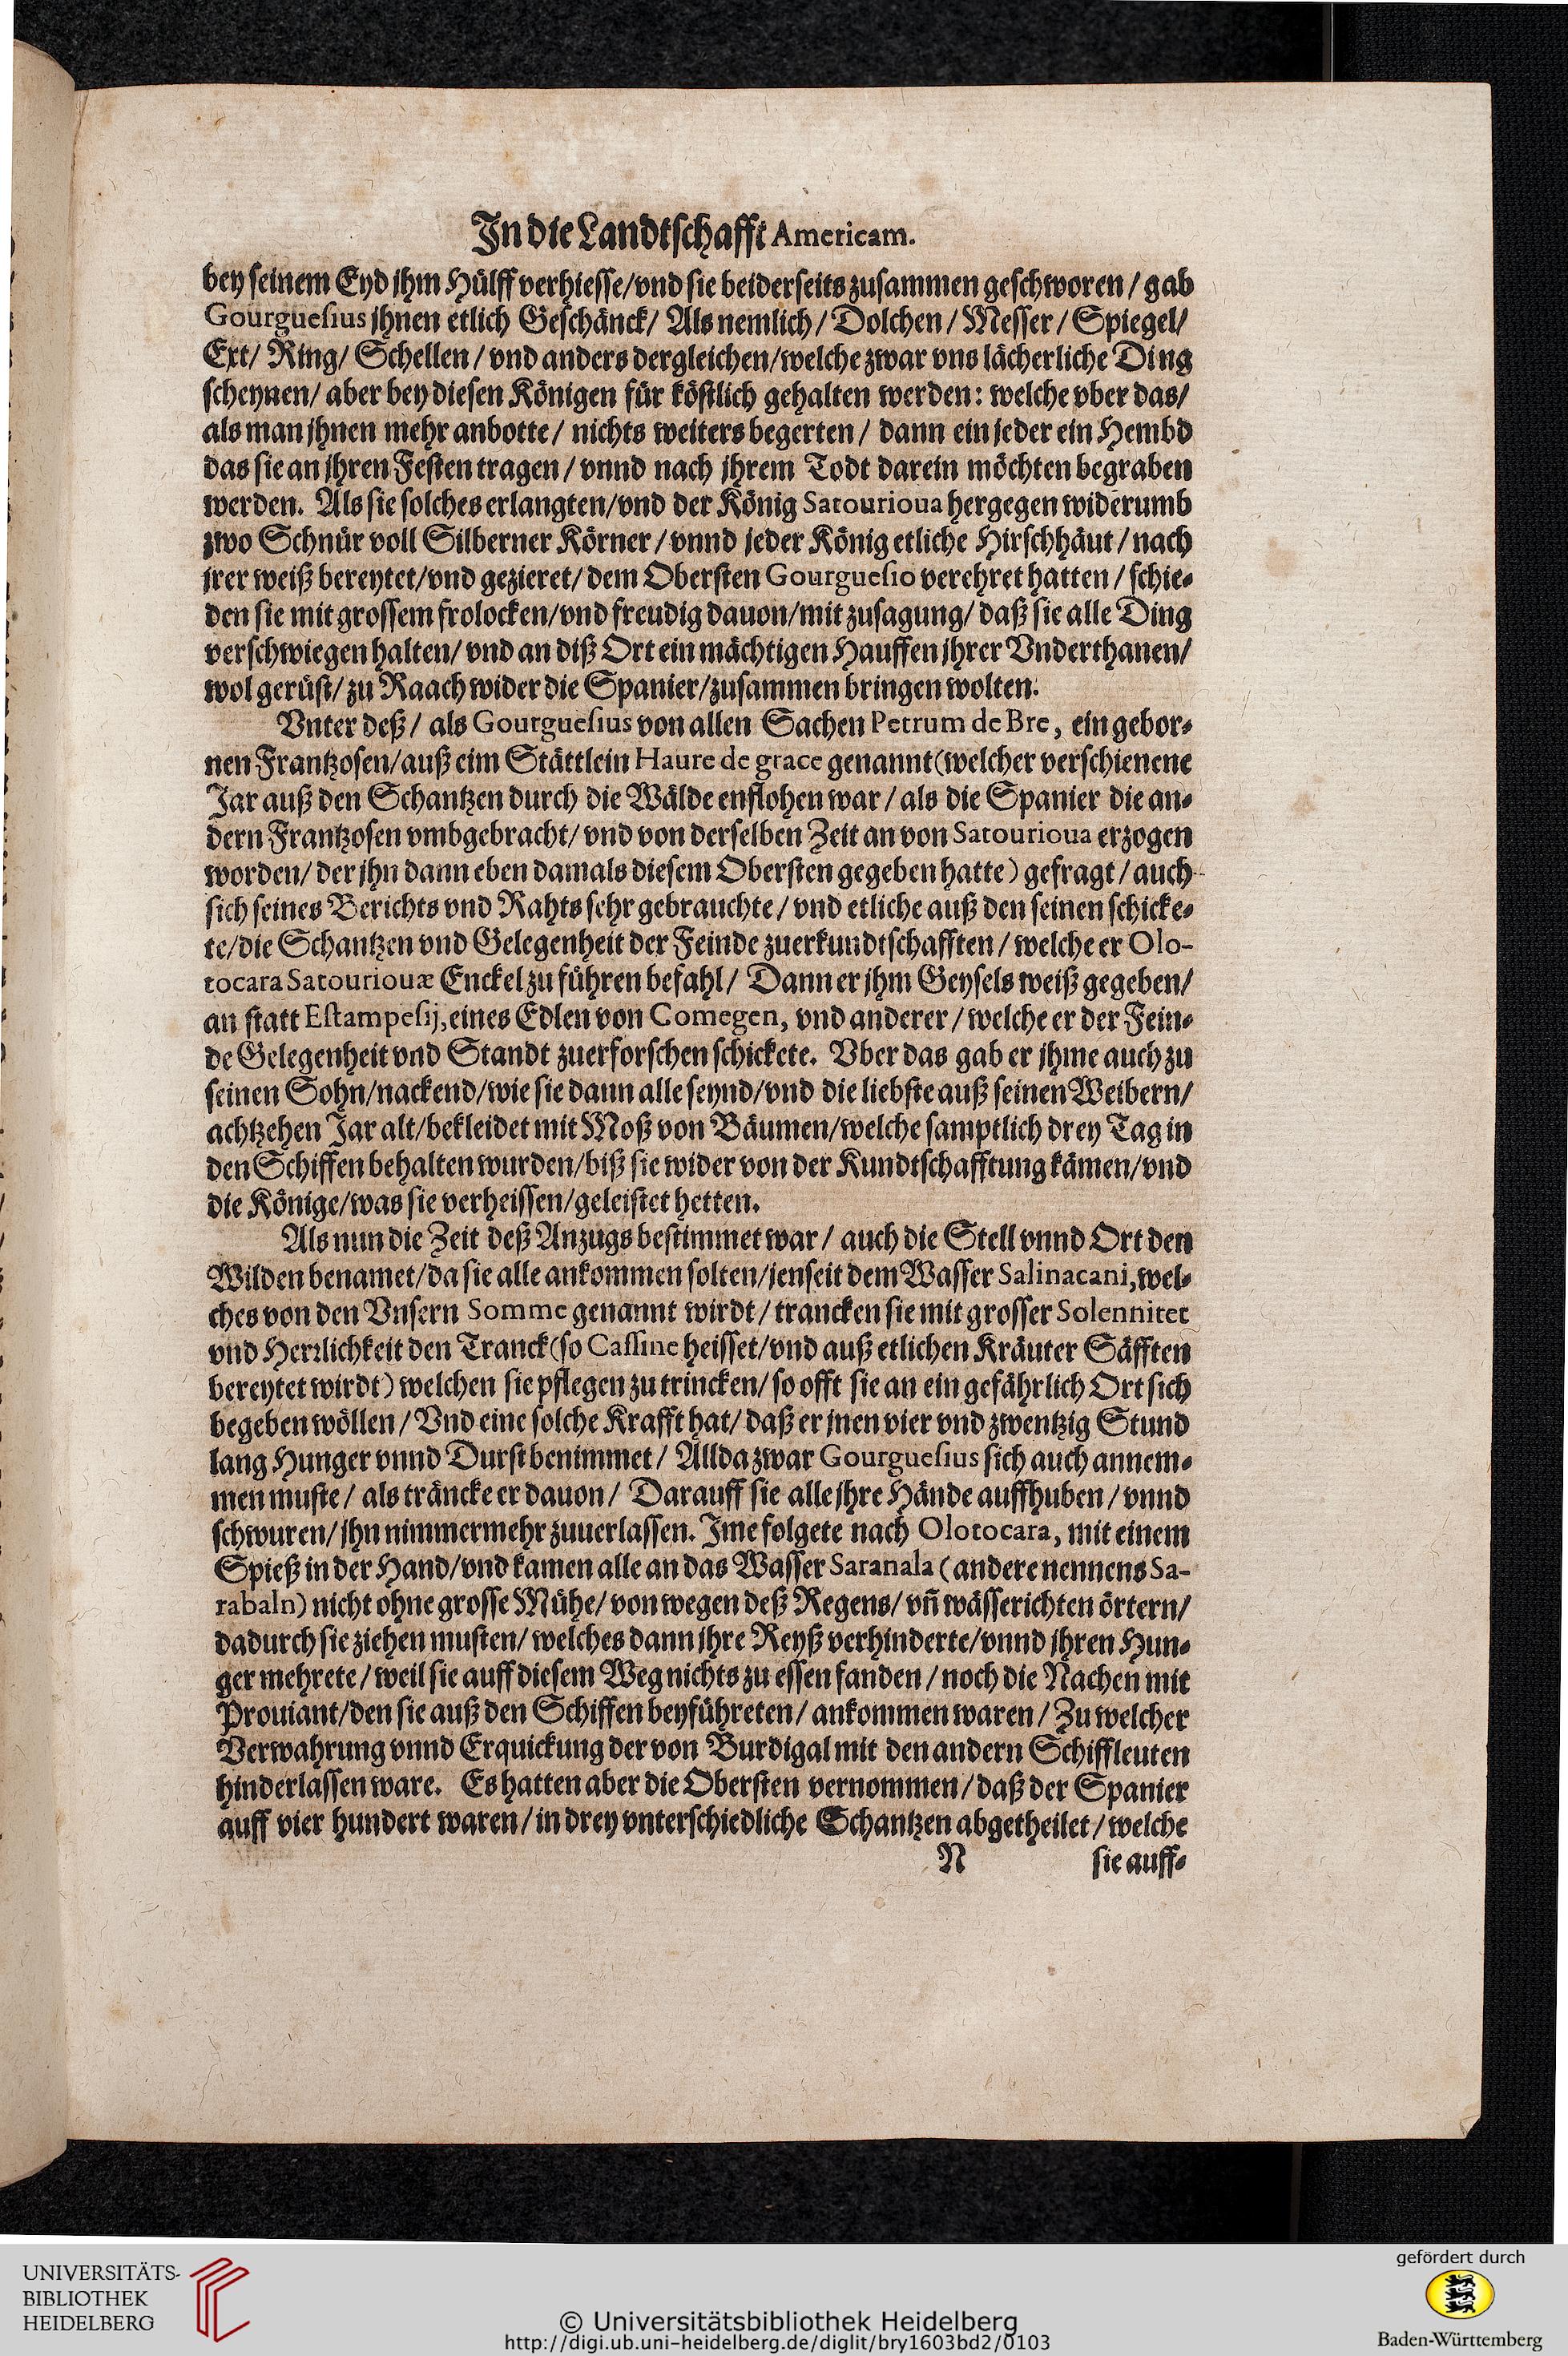 In die Landtschafft Americam.
bey seinem Eyd jhm Hülff verhiesse/vnd sie beiderseits zusammen geschworen / gab
Gourguesius jhnen etlich Geschänck/ Als nemlich / Dolchen / Messer / Spiegel/
Ext/ Ring/ Schellen / vnd anders dergleichen/welche zwar vns lächerliche Ding
scheynen/ aber bey diesen Königen für köstlich gehalten werden: welche vber das/
als man jhnen mehr anbotte / nichts weiters begerten / dann ein jeder ein Hembd
das sie an jhren Festen tragen / vnnd nach jhrem Todt darein möchten begraben
werden. Als sie solches erlangten/vnd der König Satourioua hergegen widerumb
zwo Schnür voll Silberner Körner / vnnd jeder König etliche Hirschhäut / nach
jrer weiß bereytet/vnd gezieret/ dem Obersten Gourguesio verehret hatten / schie-
den sie mit grossem frolocken/vnd freudig dauon/mit zusagung/ daß sie alle Ding
verschwiegen halten/ vnd an diß Ort ein mächtigen Hauffen jhrer Vnderthanen/
wol gerüst/ zu Raach wider die Spanier/zusammen bringen wolten.
Vnter deß / als Gourguesius von allen Sachen Petrum de Bre, ein gebor-
nen Frantzosen/auß eim Stättlein Haure de grace genannt (welcher verschienene
Jar auß den Schantzen durch die Wälde enflohen war / als die Spanier die an-
dern Frantzosen vmbgebracht/ vnd von derselben Zeit an von Satourioua erzogen
worden/ der jhn dann eben damals diesem Obersten gegeben hatte) gefragt / auch
sich seines Berichts vnd Rahts sehr gebrauchte / vnd etliche auß den seinen schicke-
te/die Schantzen vnd Gelegenheit der Feinde zuerkundtschafften / welche er Olo-
tocara Satouriouæ Enckel zu führen befahl/ Dann er jhm Geysels weiß gegeben/
an statt Estampesij, eines Edlen von Comegen, vnd anderer / welche er der Fein-
de Gelegenheit vnd Standt zuerforschen schickete. Vber das gab er jhme auch zu
seinen Sohn/nackend/wie sie dann alle seynd/vnd die liebste auß seinen Weibern/
achtzehen Jar alt/bekleidet mit Moß von Bäumen/welche samptlich drey Tag in
den Schiffen behalten wurden/biß sie wider von der Kundtschafftung kämen/vnd
die Könige/was sie verheissen/geleistet hetten.
Als nun die Zeit deß Anzugs bestimmet war / auch die Stell vnnd Ort den
Wilden benamet/da sie alle ankommen solten/jenseit dem Wasser Salinacani, wel-
ches von den Vnsern Somme genannt wirdt / trancken sie mit grosser Solennitet
vnd Herrlichkeit den Tranck (so Cassine heisset/vnd auß etlichen Kräuter Säfften
bereytet wirdt) welchen sie pflegen zu trincken/ so offt sie an ein gefährlich Ort sich
begeben wöllen / Vnd eine solche Krafft hat/ daß er jnen vier vnd zwentzig Stund
lang Hunger vnnd Durst benimmet / Allda zwar Gourguesius sich auch annem-
men muste / als träncke er dauon / Darauff sie alle jhre Hände auffhuben / vnnd
schwuren/ jhn nimmermehr zuuerlassen. Ime folgete nach Olotocara, mit einem
Spieß in der Hand/vnd kamen alle an das Wasser Saranala (andere nennens Sa-
rabaln) nicht ohne grosse Mühe/ von wegen deß Regens/ vñ wässerichten örtern/
dadurch sie ziehen musten/ welches dann jhre Reyß verhinderte/vnnd jhren Hun-
ger mehrete / weil sie auff diesem Weg nichts zu essen fanden / noch die Nachen mit
Prouiant/den sie auß den Schiffen beyführeten / ankommen waren / Zu welcher
Verwahrung vnnd Erquickung der von Burdigal mit den andern Schiffleuten
hinderlassen ware. Es hatten aber die Obersten vernommen / daß der Spanier
auff vier hundert waren / in drey vnterschiedliche Schantzen abgetheilet / welche
N sie auff-
UNIVERSITÄTS-
BIBLIOTHEK
HEIDELBERG
© Universitätsbibliothek Heidelberg
http://digi.ub.uni-heidelberg.de/diglit/bry1603bd2/0103
gefördert durch
Baden-Württemberg